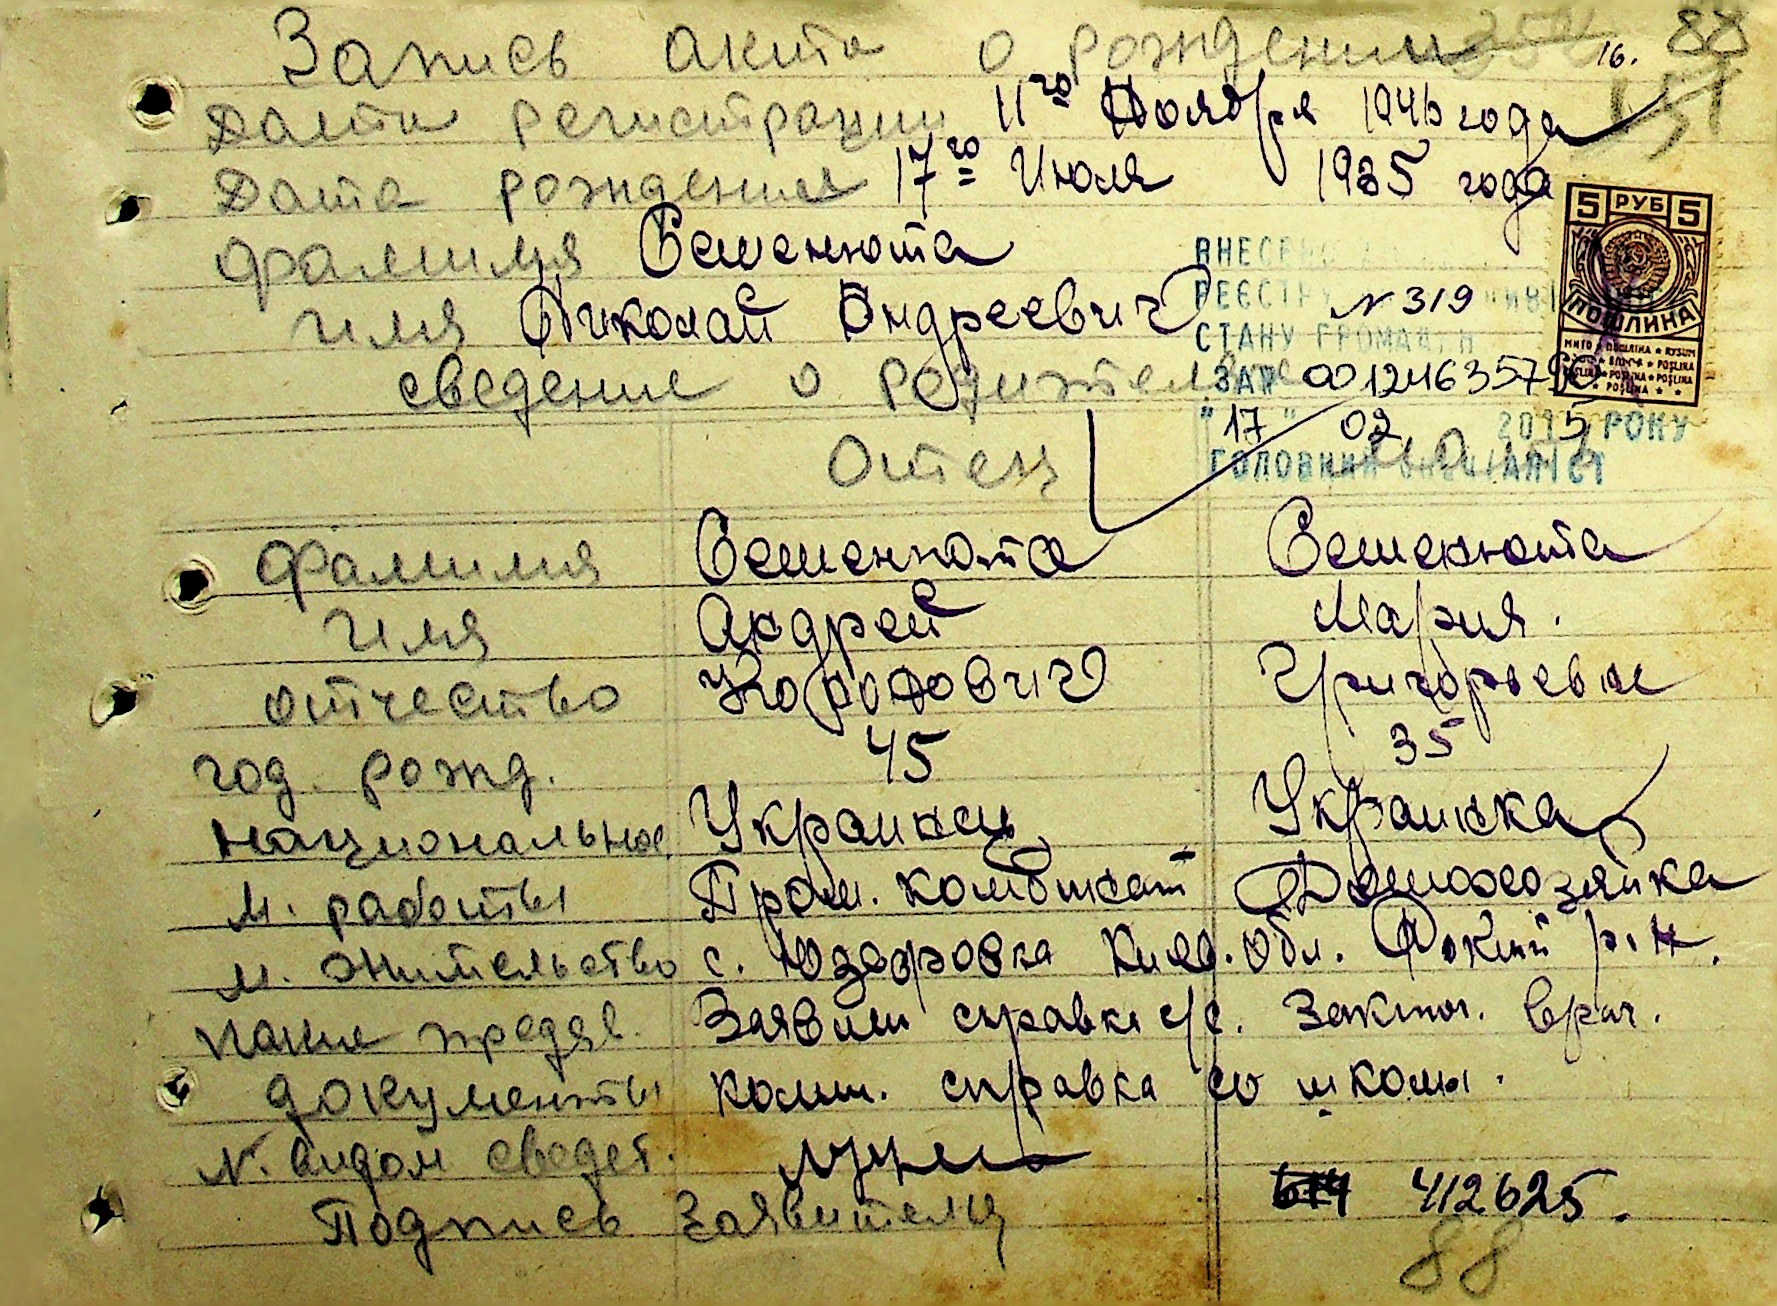 Запись акта о рождении 16. 88
Дата регистрации 11го Ноября 1946 года
Дата рождения 17го Июля 1935 года
фамилия Семенюта
имя Николай Андреевич № 319
сведение о родителях
5 РУБ 5
ПОШЛИНА
ВНЕСЕНО
РЕЄСТР
СТАНУ ГРОМАДЯН
ЗАР 00124635790
"17" 02 2015 РОКУ
ГОЛОВНИЙ СПЕЦІАЛІСТ
Отец Мать
фамилия Семенюта Семенюта
имя Андрей Мария.
отчество Григорьевна
год рожд. 45 35
национальнос. Украинец Украинка
м. работы Пром. комбинат Домохозяйка
м. жительство с. Юзефовка Киев. обл. р-н.
какие предяв. Заявлен справка с/с. Заключ. врач.
документы комис. справка со школы.
N. видом сведет.
412625.
Подпись Заявителя
88